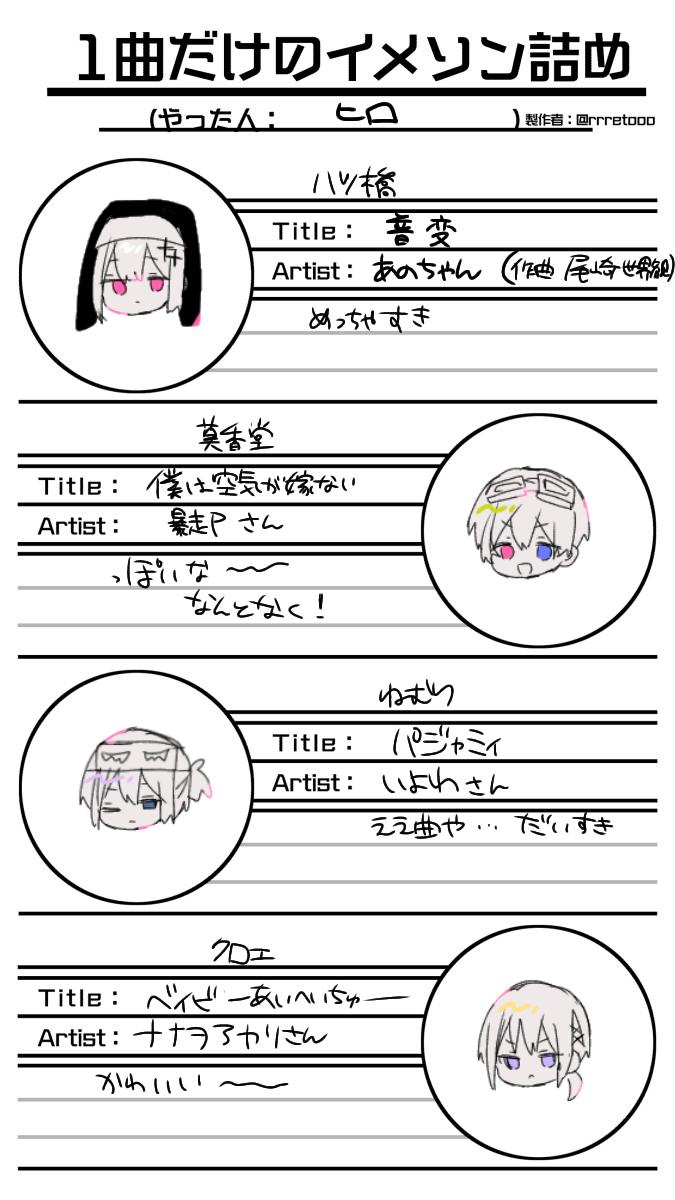 1曲だけのイメソン詰め
(やった人: ヒロ ) 製作者:@rrretooo
ハツ橋
Title: 音変
Artist: あのちゃん (作曲 尾崎世界観)
めっちゃすき
莫香堂
Title: 僕は空気が嫁ない
Artist: 暴走P さん
っぽいな〜〜
なんとなく!
ねむり
Title: パジャミィ
Artist: いよわさん
ええ曲や… だいすき
クロエ
Title: ベイビーあいへいちゅー
Artist: ナナヲアカリさん
かわいい〜〜